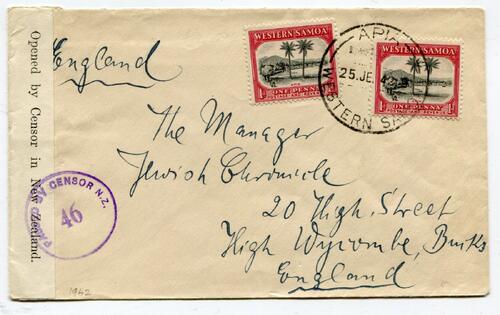 Opened by Censor in New Zealand.
England
WESTERN SAMOA
1d
ONE PENNY
POSTAGE AND REVENUE
WESTERN SAMOA
ONE PENNY 1d
POSTAGE AND REVENUE
APIA
25.JE.42
WESTERN SAMOA
The Manager
Jewish Chronicle
20 High. Street
High Wycombe, Bucks
England
PASSED BY CENSOR N.Z.
46
1942